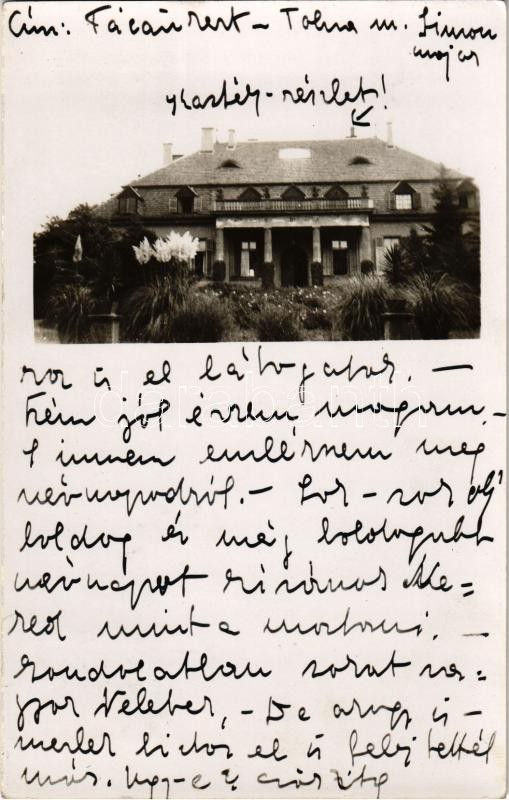 Cím: Fácánkert - Tolna m. Simon
major
Kastély-részlet!
roz is el látogatok. -
Fém jól érzem magam, -
S innen emlékszem meg
névnapodról. - Sok-sok oly
boldog és még boldogabb
névnapot kívánok Ne=
ked mint a mostani. -
gondolatban sokat va=
gyok Veletek, - De ahogy is-
merlek biztos el is felejtettél
már. Ugy-e?